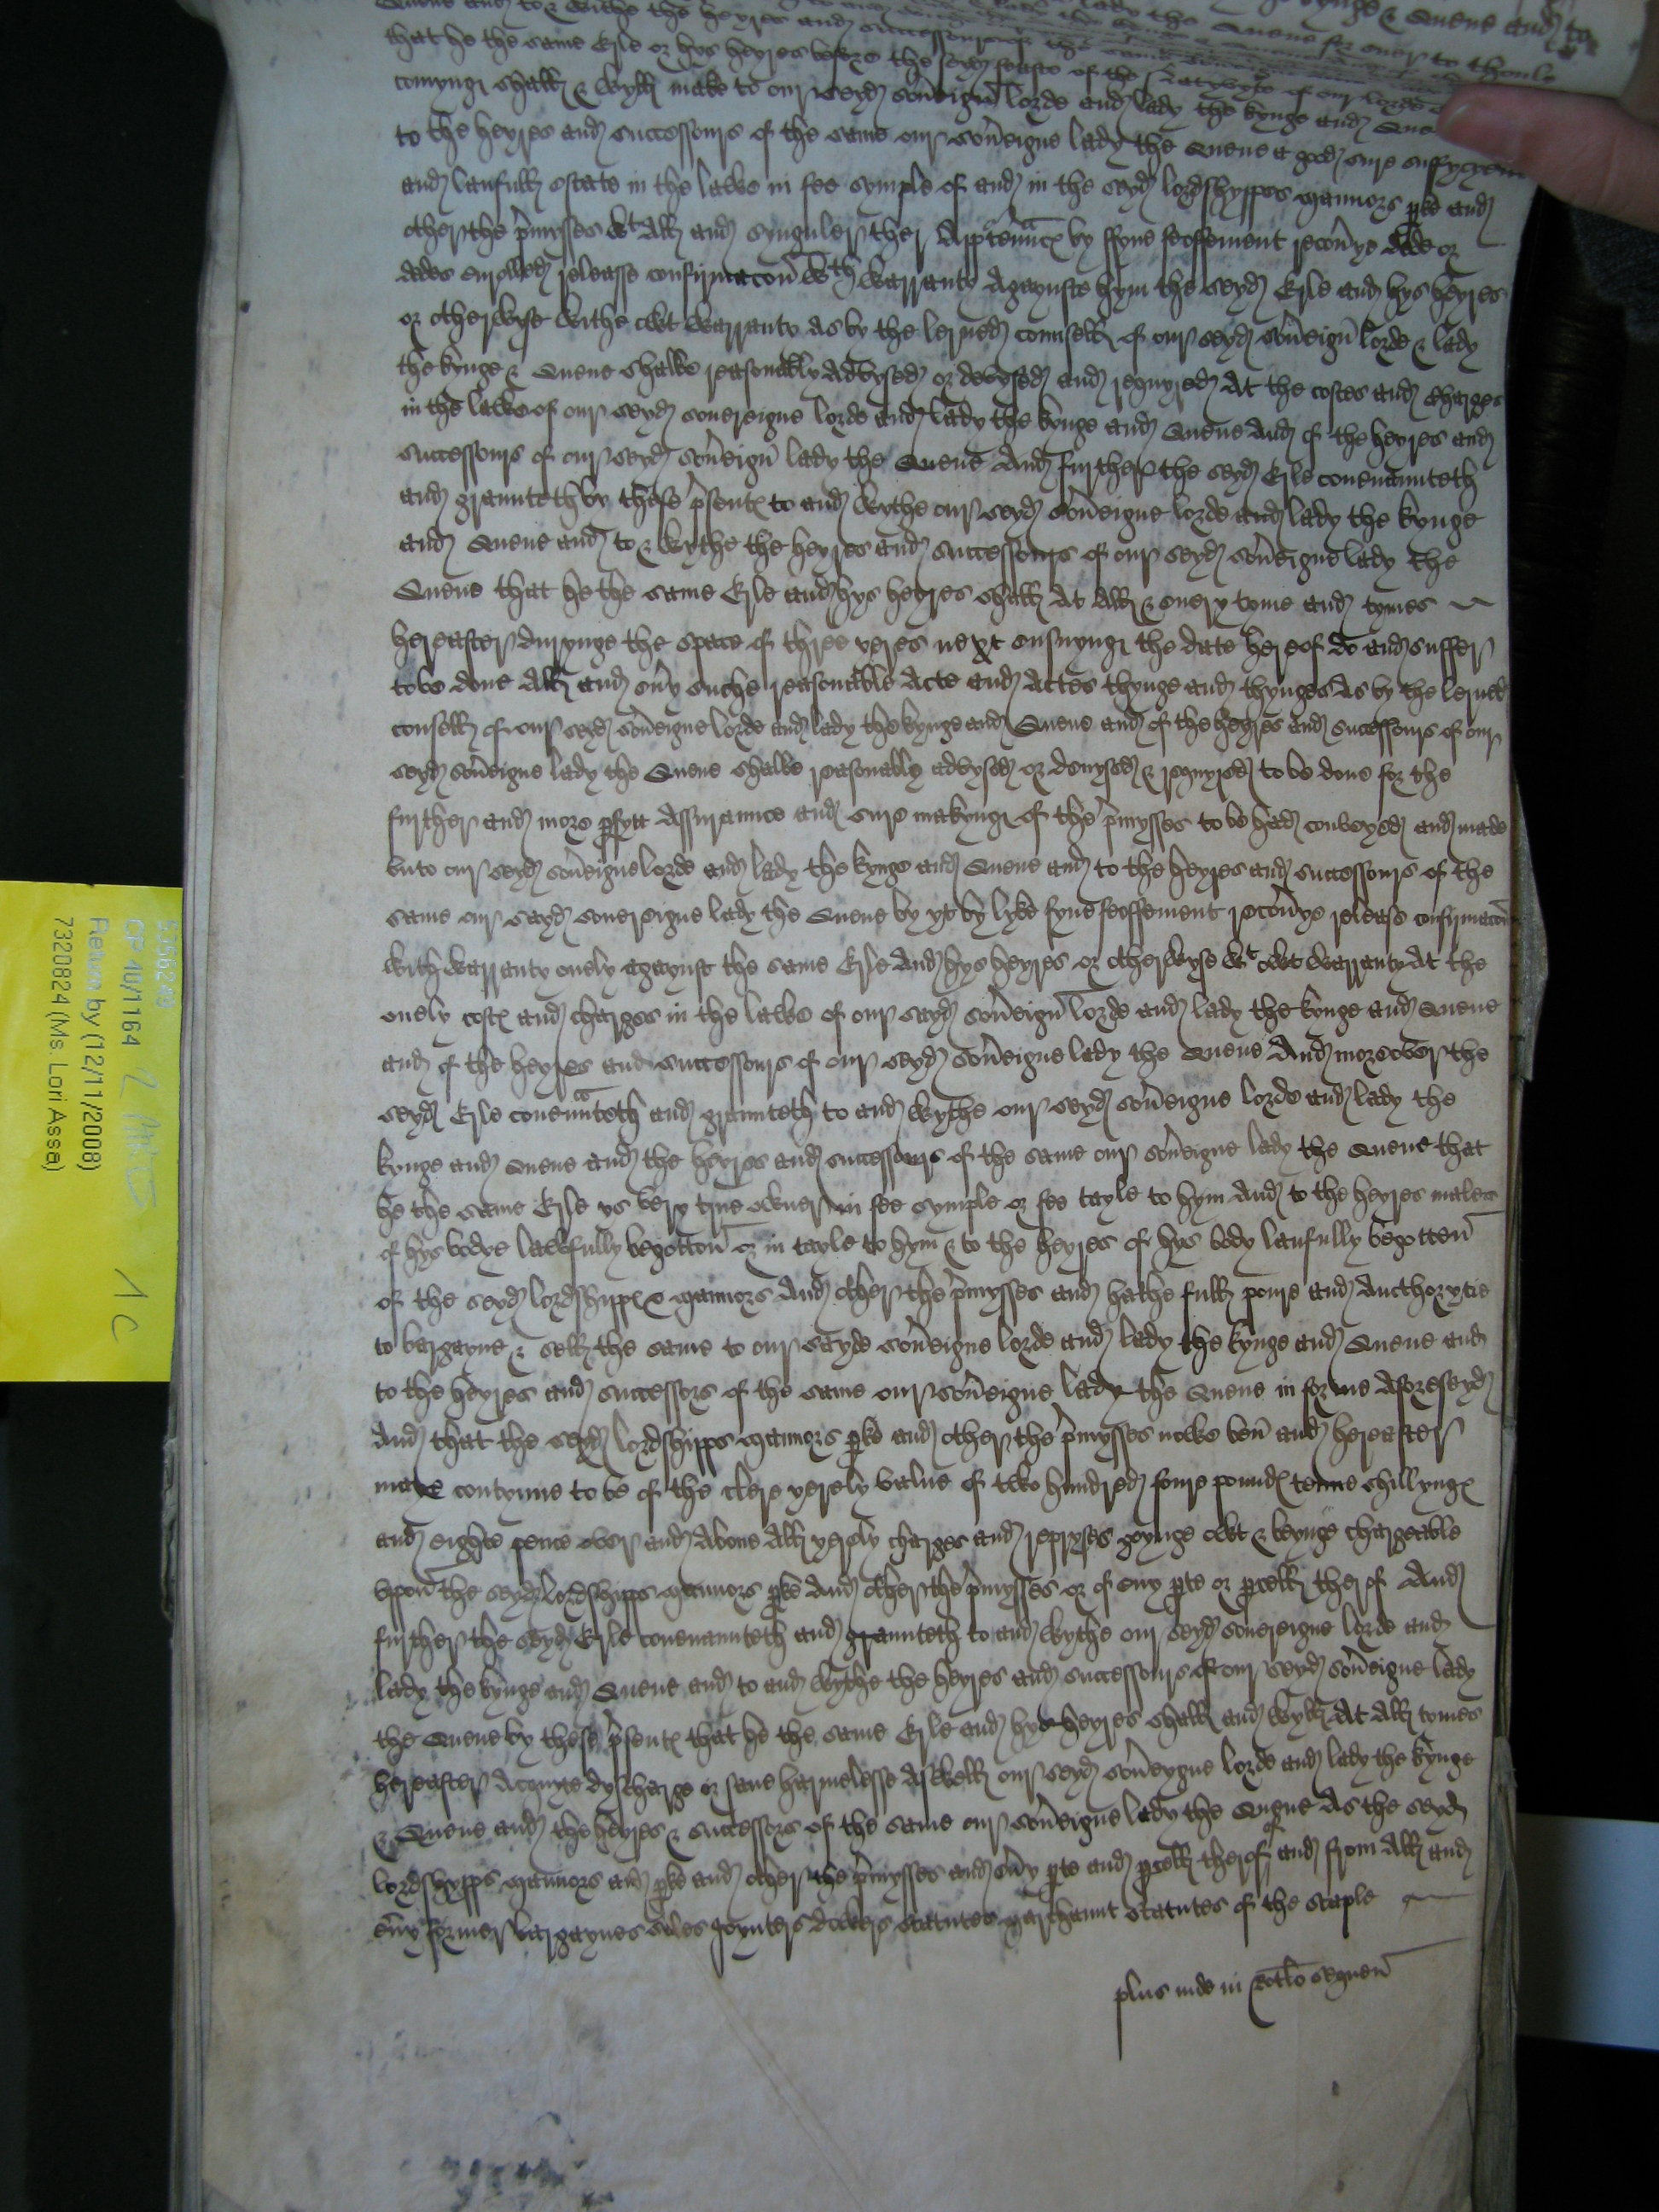 Quene and to & withe the heyres and successours of the same
that he the same Erle or hys heyres before the seyd feaste of the Natyvyte of our lorde
comyng shall & wyll make to our seyd sov'eign lorde and lady the kynge and Que
to the heyres and successours of the same our sov'eigne lady the Quene a good sure suffycyent
and laufull estate in the lawe in fee symple of and in the seyd lordshyppes mannors p'ke and
other the p'mysses wt all and synguler ther app'ten'nc by ffyne feoffement recov'ye dede or
dedes enrolled release confirmacon wth warranty agaynste hym the seyd Erle and hys heyres
or otherwyse withe owt warranty as by the lerned counsell of our seyd sov'eign lorde & lady
the kynge & Quene shalbe reasonably advysed or devysed and requyred at the costes and charges
in the lawe of our seyd sovereigne lorde and lady the kynge and Quene and of the heyres and
successours of our seyd sov'eign lady the Quene And further the seyd Erle covenaunteth
and graunteth by these p'sent to and wythe our seyd sov'eigne lorde and lady the kynge
and Quene and to & wythe the heyres and successours of our seyd sov'eigne lady the
Quene that he the same Erle and hys heyres shall at all & every tyme and tymes
hereafter durynge the space of three yeres next ensuyng the date hereof do and suffer
to be done all and ev'y suche reasonable acte and actes thynge and thynges as by the lerned
consell of our seyd sov'eigne lorde and lady the kynge and Quene and of the heyres and successours of our
seyd sov'eigne lady the Quene shalbe reasonably advysed or devysed & requyred to be done for the
further and more p'fytt assuraunce and sure makyng of the p'mysses to be had conveyed and made
unto our seyd sov'eigne lorde and lady the kynge and Quene and to the heyres and successours of the
same our sayd sovereigne lady the Quene be yt by lyke fyne feoffement recov'ye release confirmacon
with warranty onely agaynst the same Erle and hys heyres or otherwyse wt owt warranty at the
onely cost and charges in the lawe of our sayd sov'eign lorde and lady the kynge and Quene
and of the heyres and successours of our seyd sov'eigne lady the Quene And moreover the
seyd Erle covenanteth and graunteth to and wythe our seyd sov'eigne lorde and lady the
kynge and Quene and the heyres and successours of the same our sov'eigne lady the Quene that
he the same Erle ys very true owner in fee symple or fee tayle to hym and to the heyres males
of hys bodye lawfully begotton or in tayle to hym & to the heyres of hys body laufully begotten
of the seyd lordshipp & mannors and other the p'mysses and hathe full poure and aucthorytie
to bargayne & sell the same to our sayde sov'eigne lorde and lady the kynge and Quene and
to the heyres and successors of the same our sov'eigne lady the Quene in forme aforeseyd
And that the seyd lordshipps mannors p'ke and other the p'mysses nowe ben and hereafter
maye contynue to be of the clere yerely value of two hundred foure pound tenne shillyng
and eighte pence over and above all yerely charges and repryses goynge owt & beynge chargeable
uppon the seyd lordshipps mannors p'ke and other the p'mysses or of eny p'te or p'cell therof And
further the seyd Erle covenaunteth and graunteth to and wythe our seyd sovereigne lorde and
lady the kynge and Quene and to and wythe the heyres and successours of our seyd sov'eigne lady
the Quene by these p'sent that he the same Erle and hys heyres shall and wyll at all tymes
hereafter acquyte dyscharge or save harmelesse aswell our seyd sov'eygne lorde and lady the kynge
& Quene and the heyres & successors of the same our sov'eigne lady the Quene as the seyd
lordshypps mannors and p'ke and other the p'mysses and ev'y p'te and p'cell therof of and from all and
ev'y former bargaynes sales joynters dowers statutes marchaunt statutes of the staple
plus inde in Rotlo sequen
5356248
CP 40/1164
Return by (12/1/2008)
7320824 (Ms. Lori Assa)
1 C